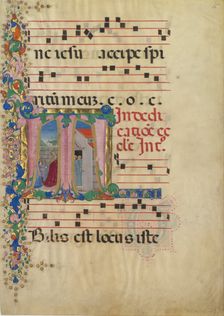 ne iesu accipe spi
ritum meuz. e. o. e.
In dedi
catioē ec
cle. Int.
T
bilis est locus iste